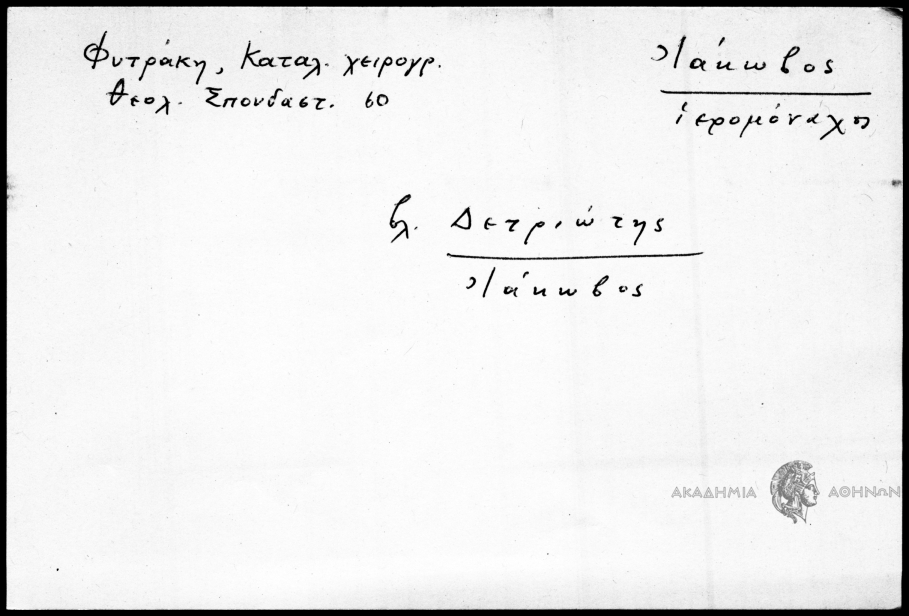 Φυτράκη, Καταλ. χειρογρ.
Θεολ. Σπουδαστ. 60
Ἰάκωβος
ἱερομόναχος
βλ. Δετριώτης
Ἰάκωβος
ΑΚΑΔΗΜΙΑ ΑΘΗΝΩΝ